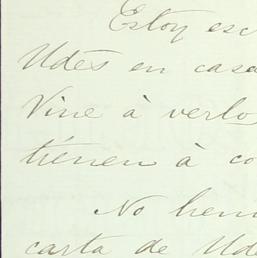 Estoy esc
Udes en casa
Vine à verlo
tiénen à co
No hem
carta de Ude